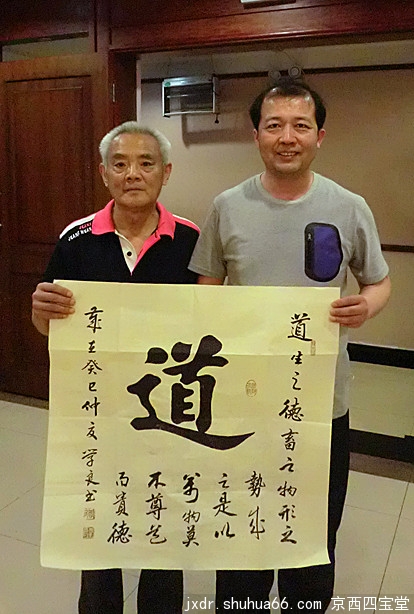 道
道生之德畜之物形之
勢成
之是以
萬物莫
不尊道
而貴德
歲在癸巳仲夏 学书
jxdr.shuhua66.com 京西四宝堂